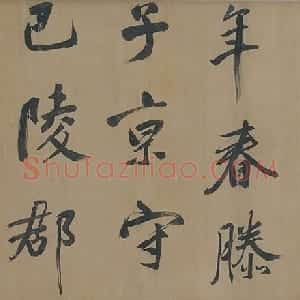 年春滕
子京守
巴陵郡
Shufaziliao.com